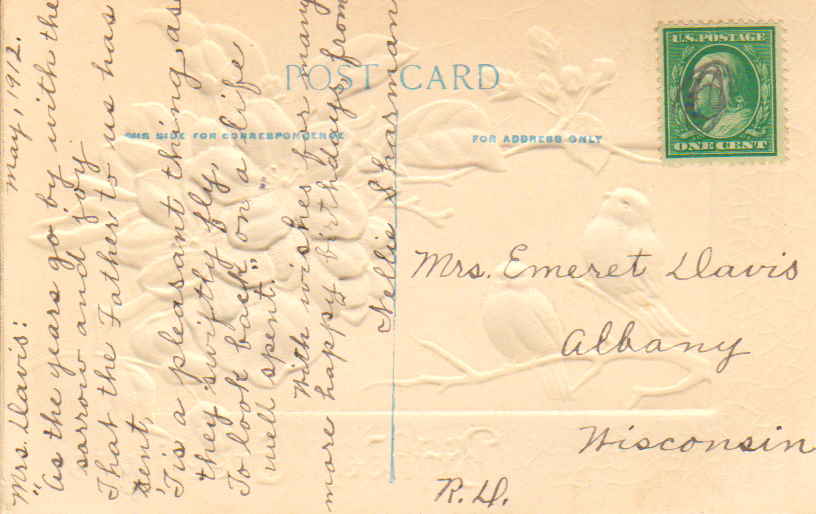 POST CARD
THIS SIDE FOR CORRESPONDENCE
FOR ADDRESS ONLY
U.S. POSTAGE
ONE CENT
May, 1912.
Mrs. Davis:
"As the years go by with the
sorrow and joy
That the Father to us has
sent,
'Tis a pleasant thing as
they swiftly fly,
To look back on a life
well spent."
With wishes for many
more happy birthdays from
Nellie Sharman
Mrs. Emeret Davis
Albany
Wisconsin
R.D.